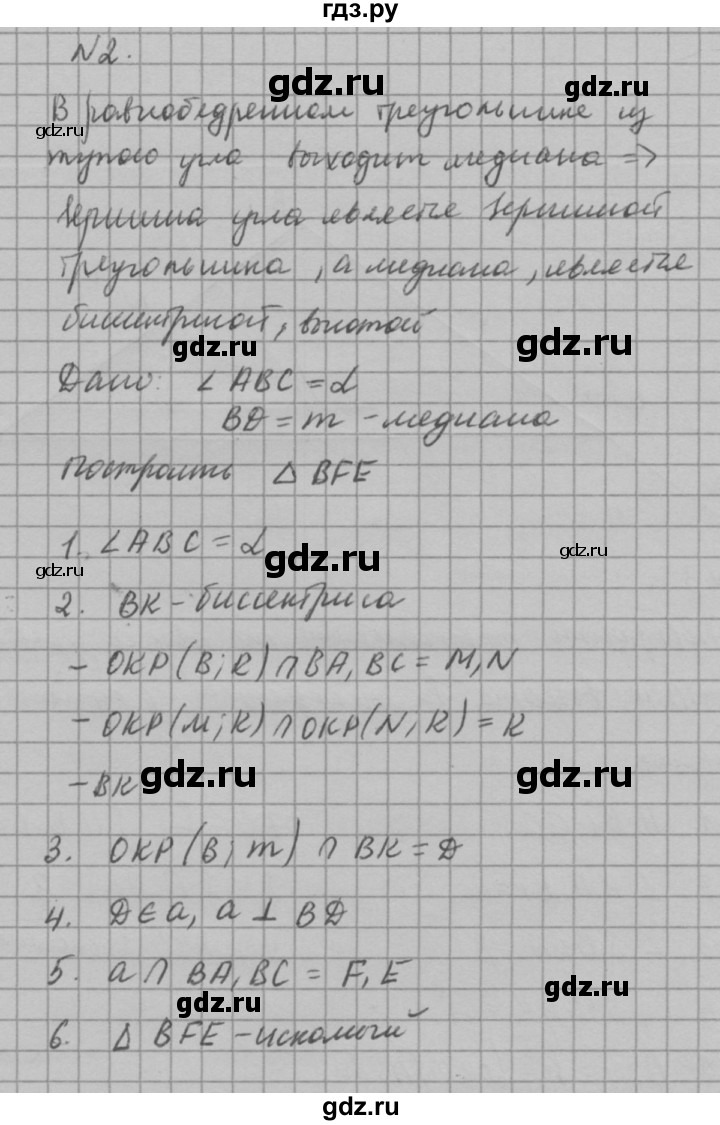 гдз.ру
N2.
gdz.ru
gdz.ru
В равнобедренном треугольнике из
gdz.ru
тупого угла выходит медиана =>
вершина угла является вершиной
треугольника, а медиана, является
биссектрисой, высотой
gdz.ru
gdz.ru
Дано: ∠ABC = α
BD = m - медиана
построить Δ BFE
1. ∠ABC = α
gdz.ru
gdz.ru
gdz.ru
2. BK - биссектриса
- ОКР(B; R) ∩ BA, BC = M, N
- ОКР(M; R) ∩ ОКР(N; R) = K
- BK
gdz.ru
gdz.ru
3. ОКР(B; m) ∩ BK = D
4. D ∈ a, a ⊥ BD
5. a ∩ BA, BC = F, E
gdz.ru
gdz.ru
6. Δ BFE - искомый
gdz.ru